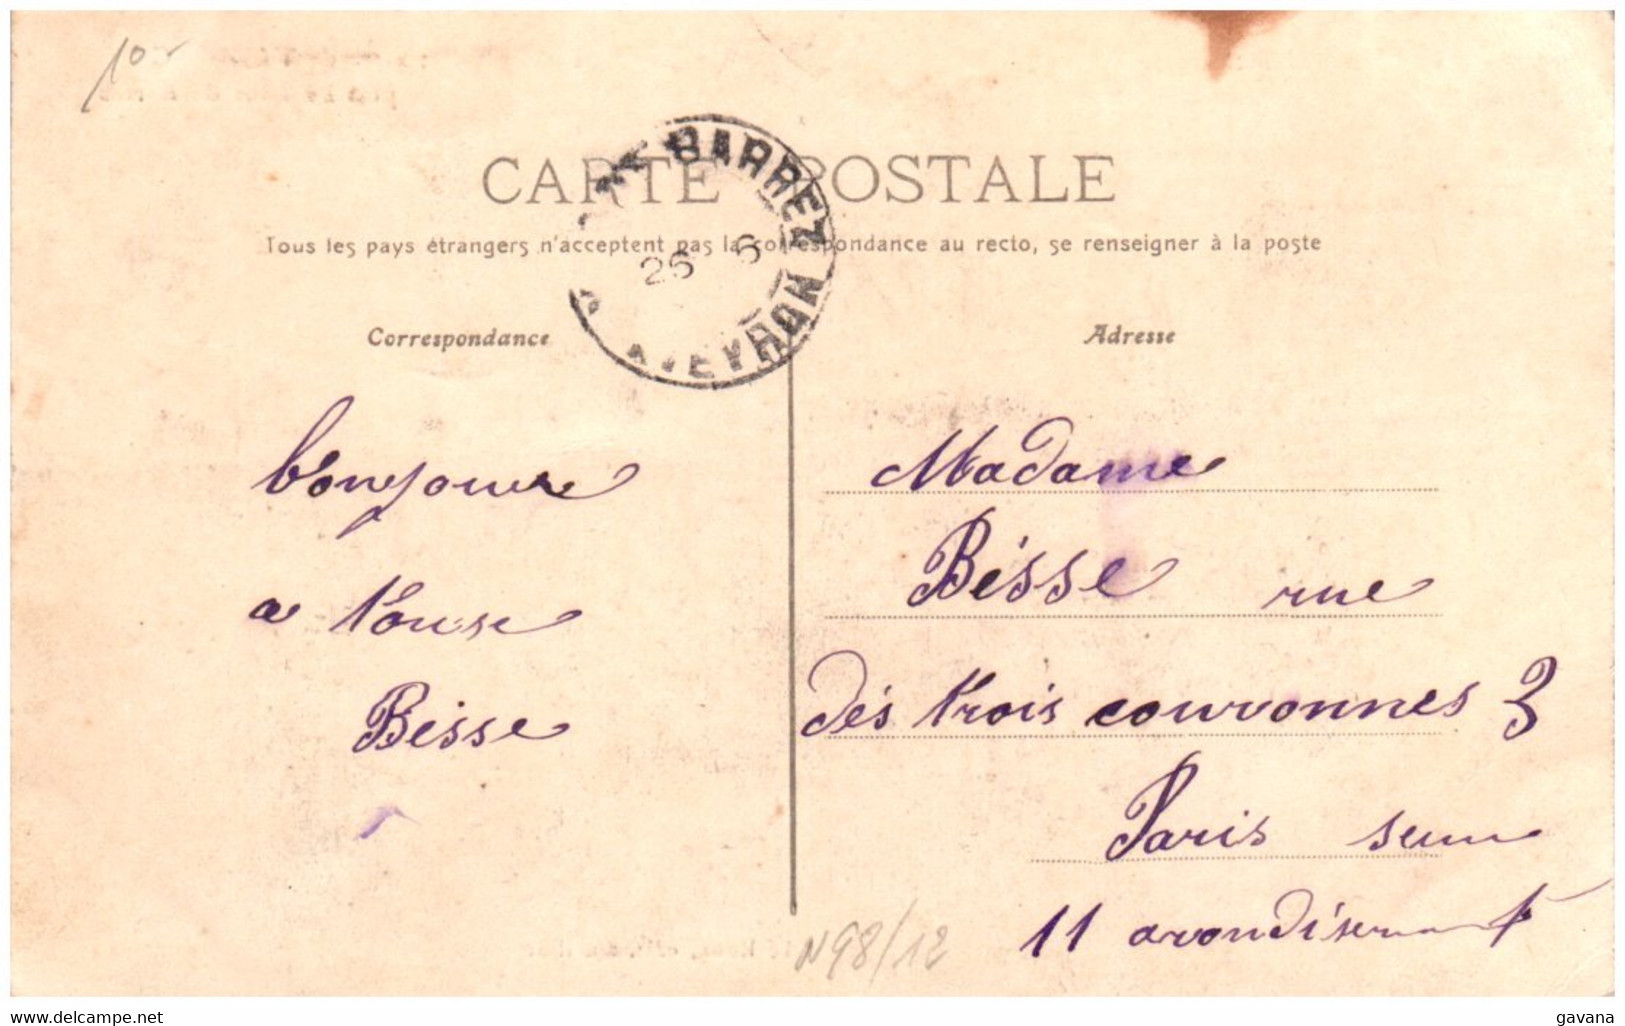 10
CARTE POSTALE
Tous les pays étrangers n'acceptent pas la correspondance au recto, se renseigner à la poste
BARREZ
26 6
AVEYRON
Correspondance
bonjour
a touse
Bésse
Adresse
Madame
Bésse rue
dés trois couronnes 3
Paris
11 arondisemant
N98/12
www.delcampe.net
gavana